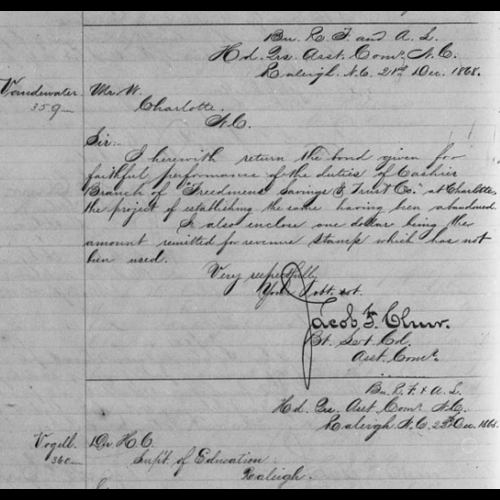 Bu. R. F. and A. L.
Hd. Qrs. Asst. Comr. N.C.
Raleigh. N.C. 21st Dec. 1868.
Vandewater Mr. W.
359 Charlotte.
N.C.
Sir.
I herewith return the bond given for
faithful performance of the duties of Cashier
Branch of "Freedmens Savings & Trust Co." at Charlotte,
the project of establishing the same having been abandoned.
I also enclose one dollar being the
amount remitted for revenue stamps which has not
been used.
Very respectfully
Your Obdt. svt.
Jacob F. Chur.
Bt. Lt. Col.
Asst. Comr.
Bu. R. F. & A. L.
Hd. Qrs. Asst. Comr. N.C.
Raleigh N.C. Dec. 186
Vogell Dr. H. C.
360 Supt. of Education.
Raleigh.